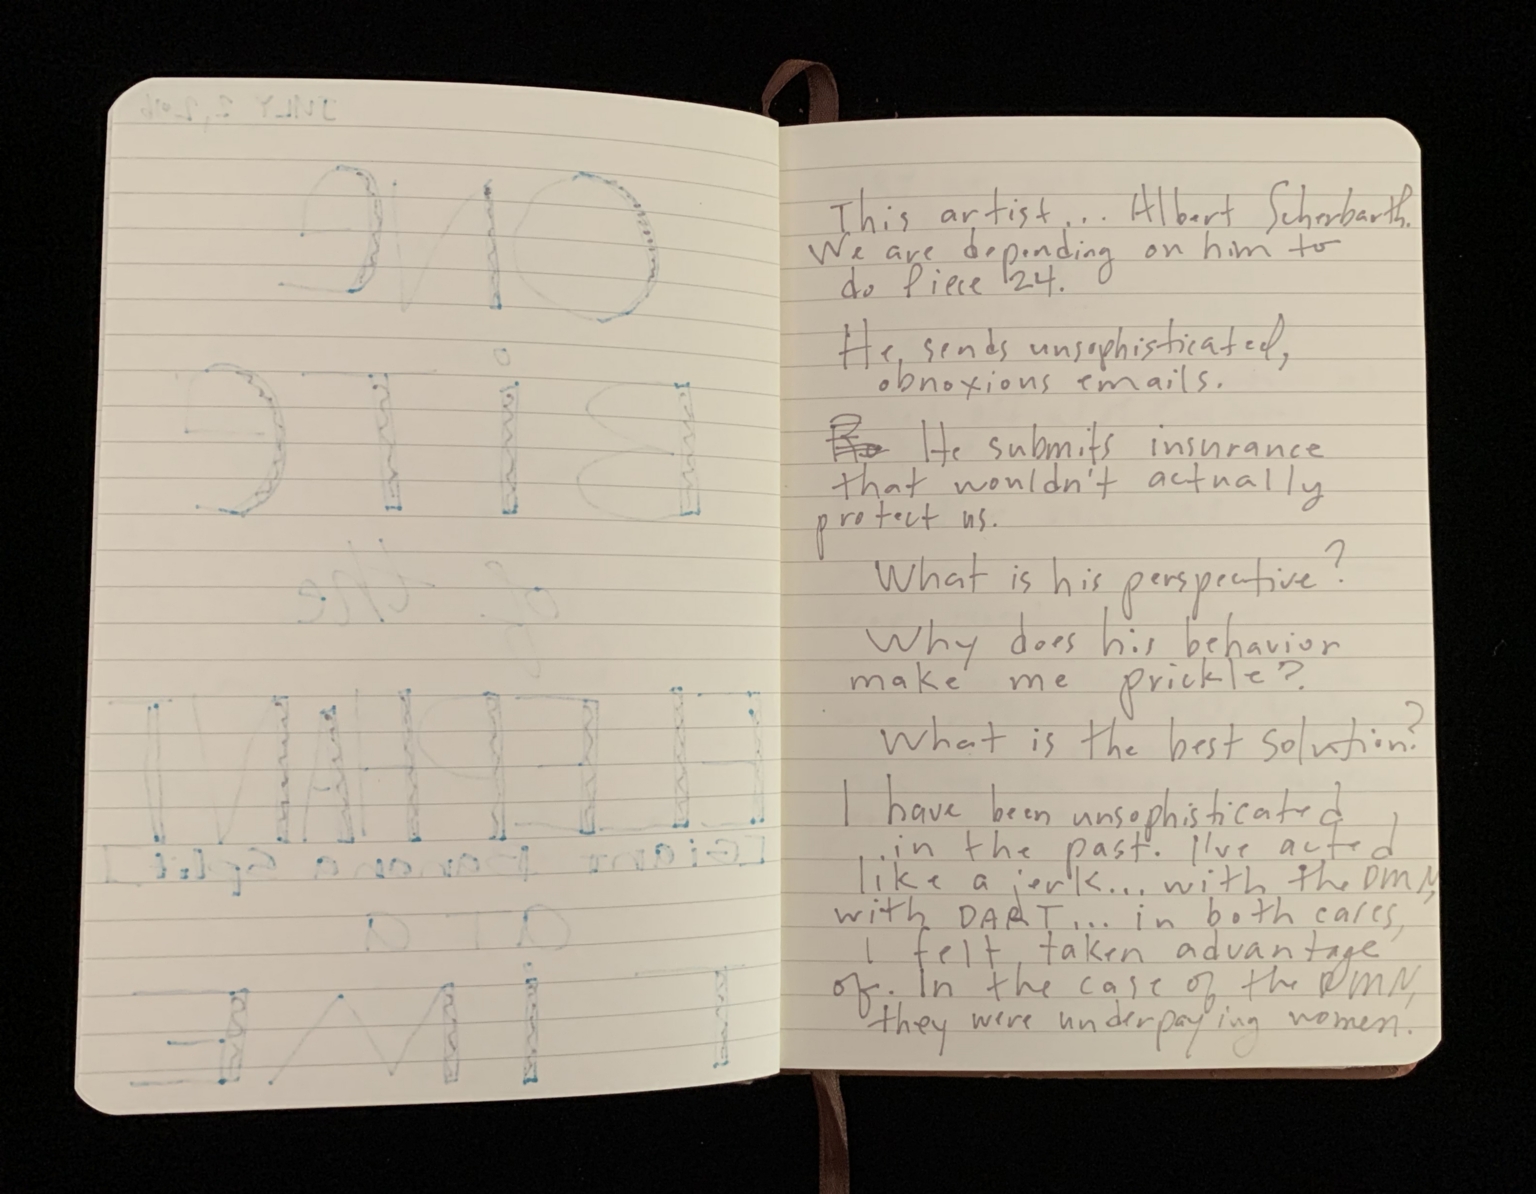 JULY 2, 2016
ONE
BiTE
of the
ELEPHANT
[Giant Banana Split]
at a
TiME
This artist... Albert Scherbarth.
We are depending on him to
do Piece 24.
He sends unsophisticated,
obnoxious emails.
He submits insurance
that wouldn't actually
protect us.
What is his perspective?
Why does his behavior
make me prickle?
What is the best solution?
I have been unsophisticated
in the past. I've acted
like a jerk... with the DMN,
with DART... in both cases,
I felt taken advantage
of. In the case of the DMN,
they were underpaying women.